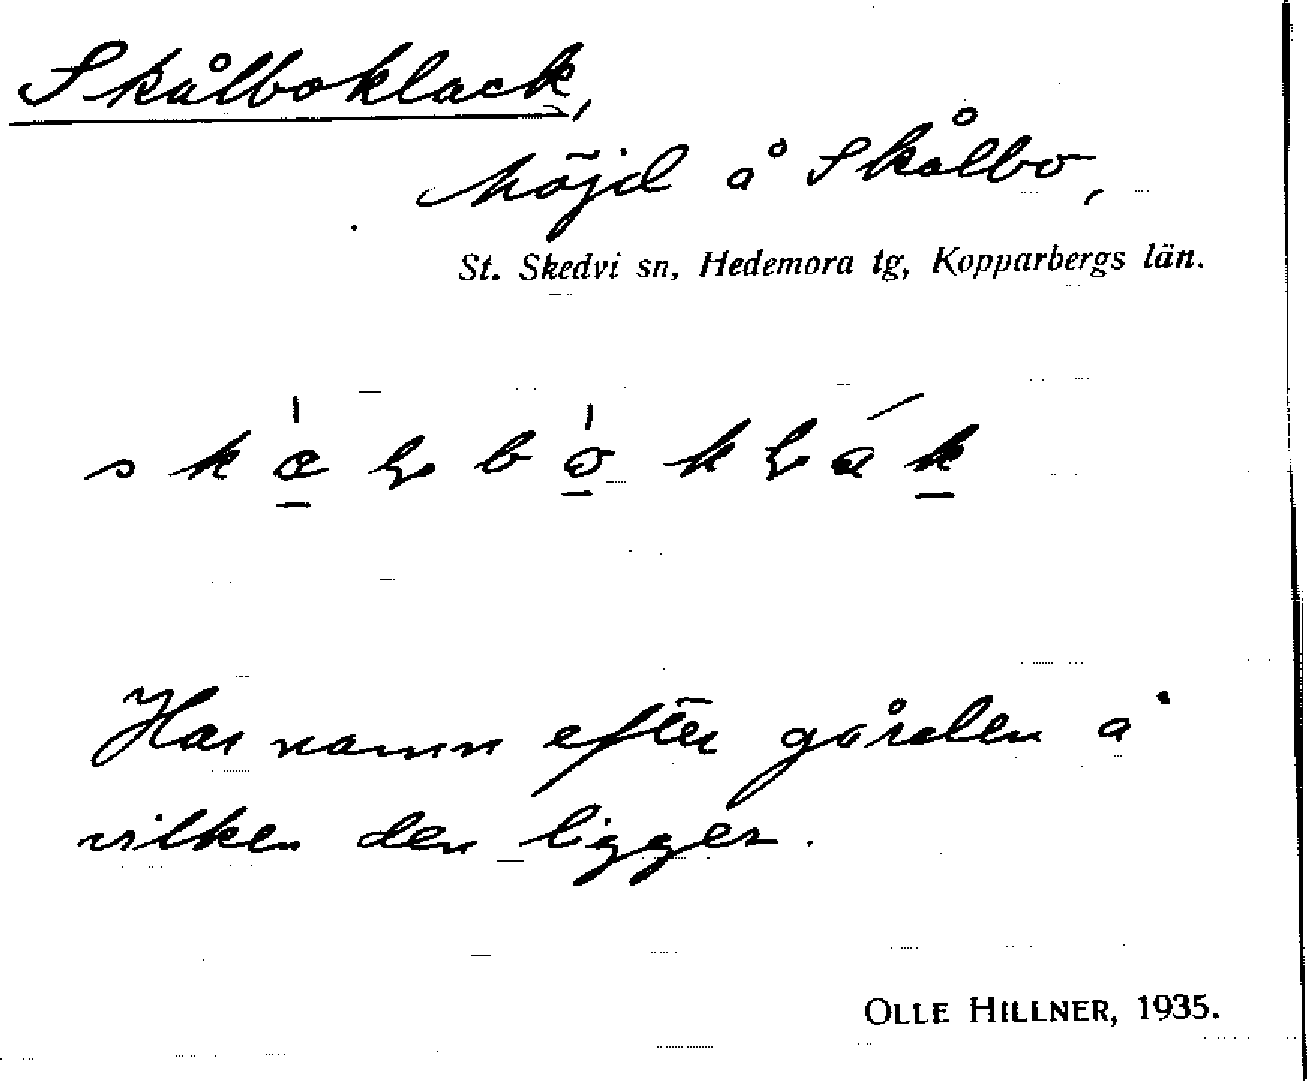 Skålboklack,
höjd å Skålbo,
St. Skedvi sn, Hedemora tg, Kopparbergs län.
Har namn efter gården å
vilken den ligger.
OLLE HILLNER, 1935.